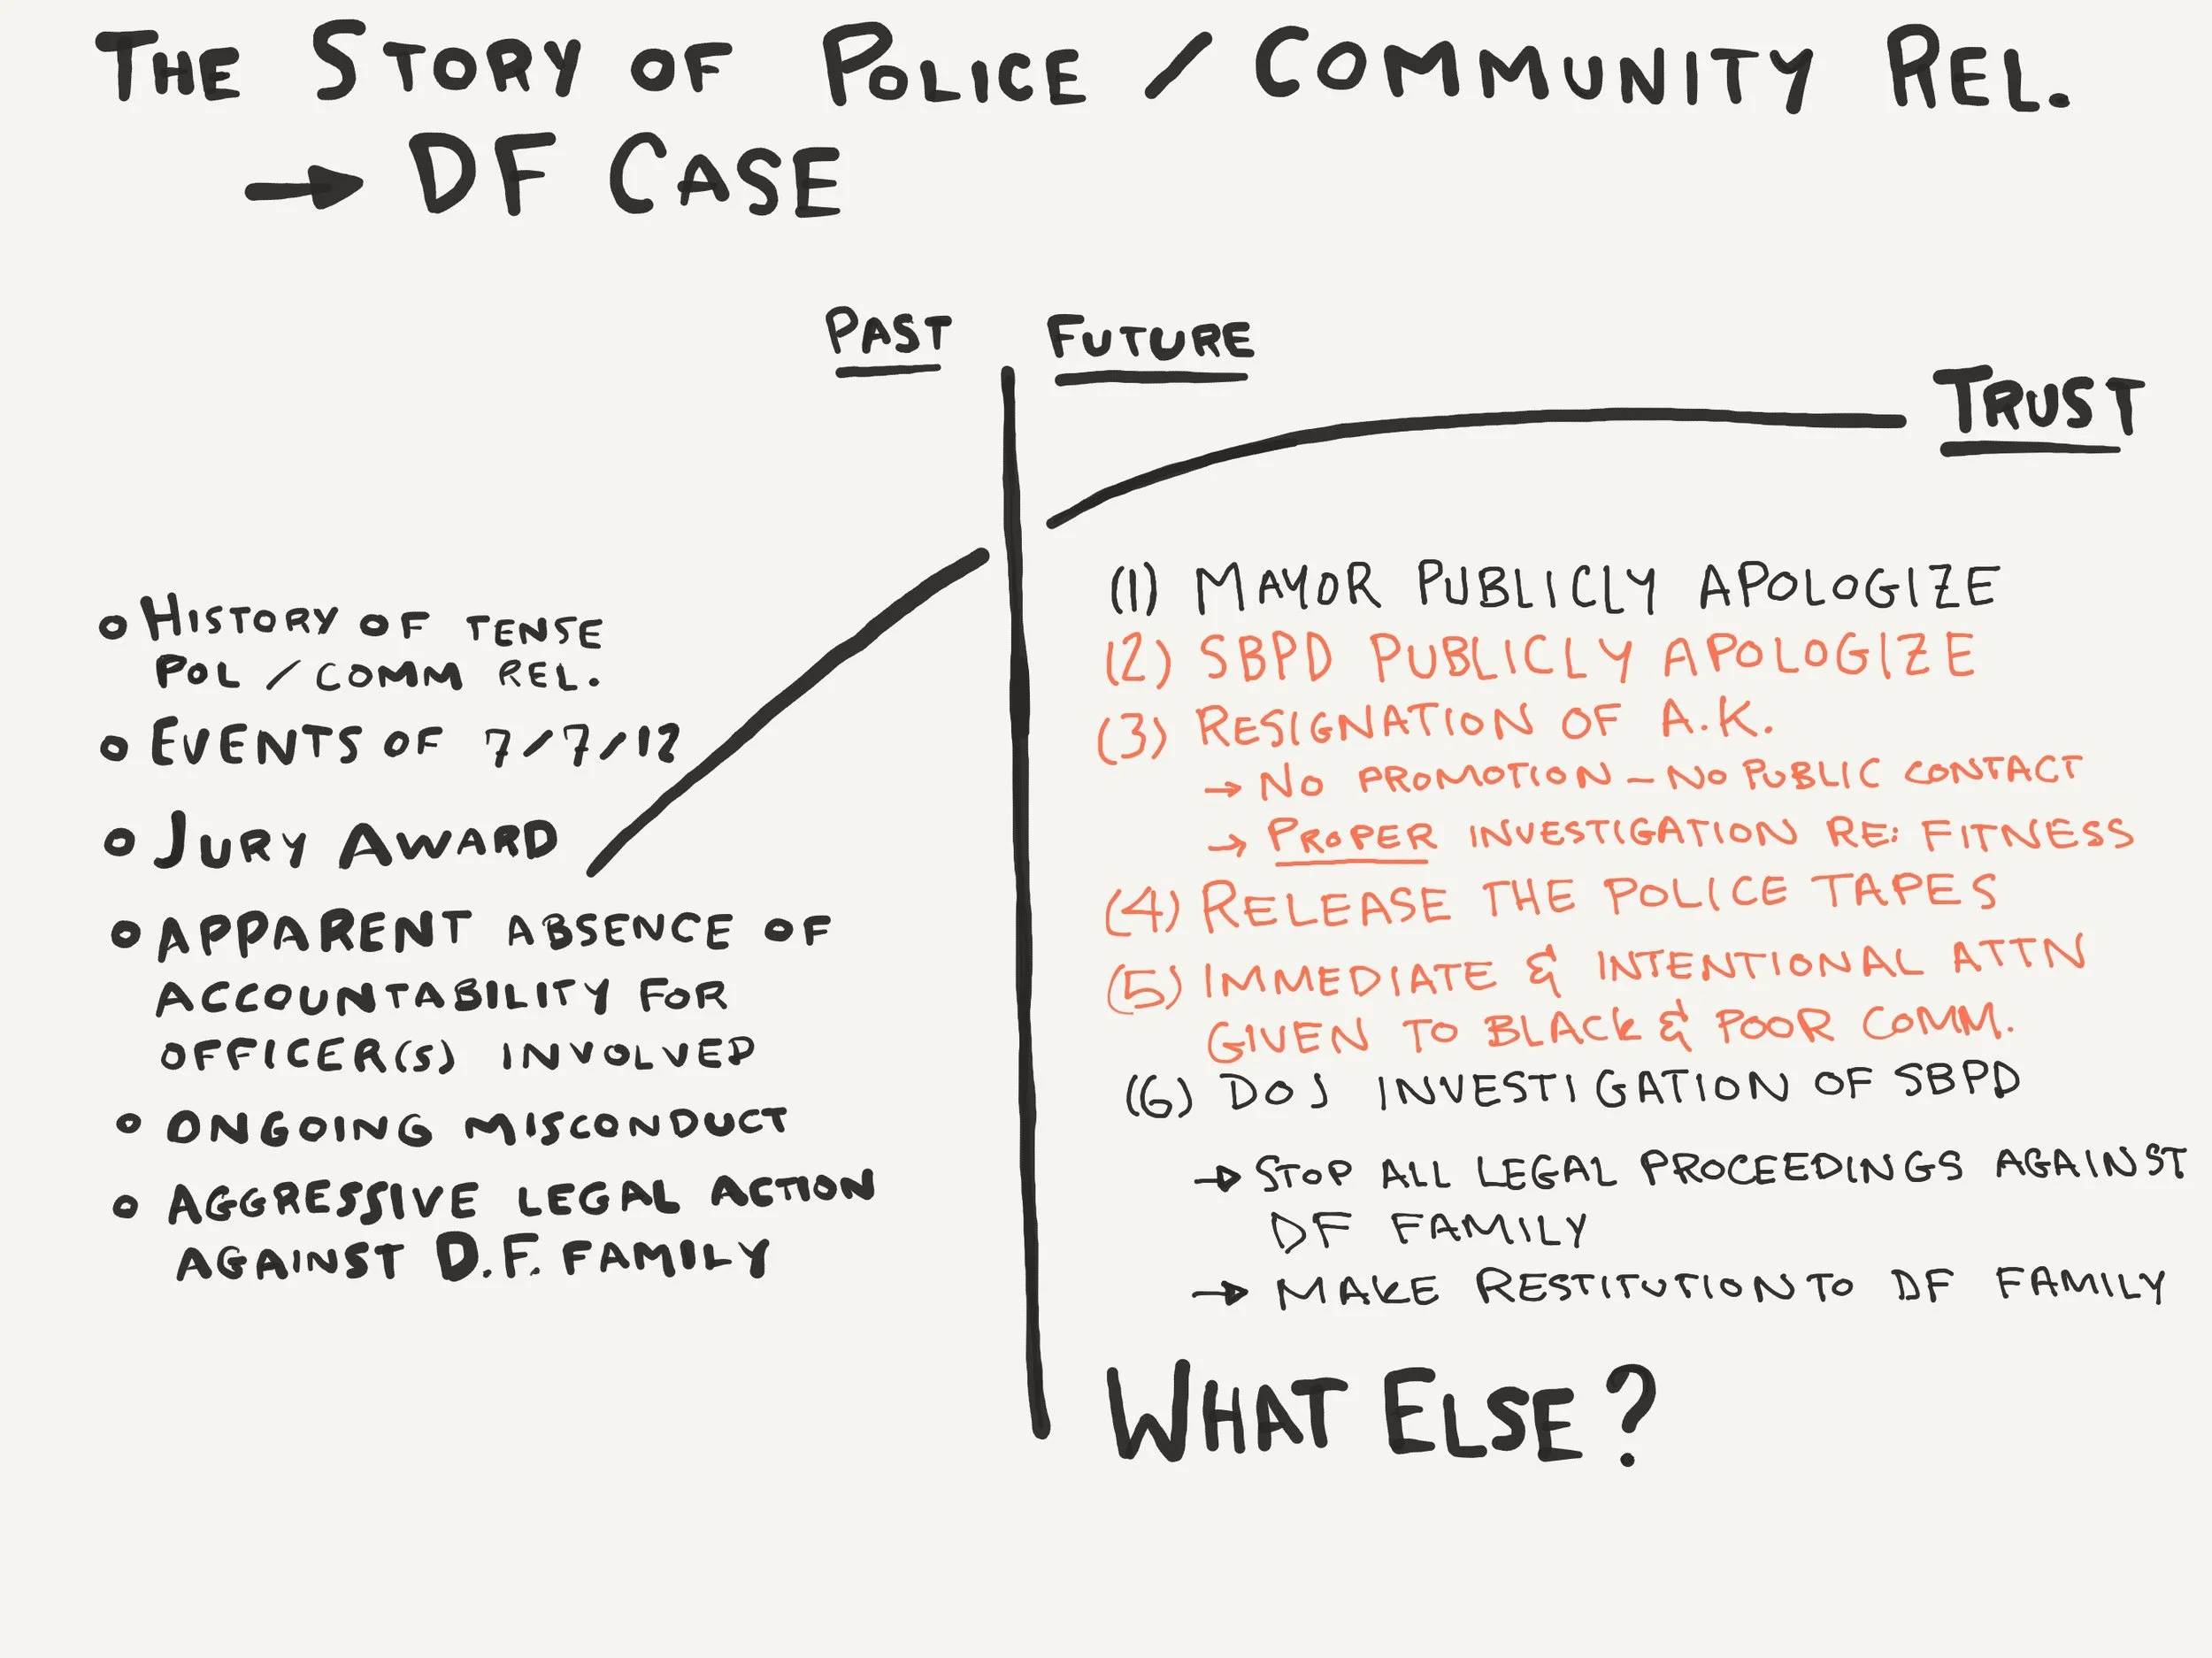 THE STORY OF POLICE / COMMUNITY REL.
→ DF CASE
PAST
FUTURE
TRUST
○ HISTORY OF TENSE
POL / COMM REL.
○ EVENTS OF 7/7/12
○ JURY AWARD
○ APPARENT ABSENCE OF
ACCOUNTABILITY FOR
OFFICER(S) INVOLVED
○ ONGOING MISCONDUCT
○ AGGRESSIVE LEGAL ACTION
AGAINST D.F. FAMILY
(1) MAYOR PUBLICLY APOLOGIZE
(2) SBPD PUBLICLY APOLOGIZE
(3) RESIGNATION OF A.K.
→ NO PROMOTION – NO PUBLIC CONTACT
→ PROPER INVESTIGATION RE: FITNESS
(4) RELEASE THE POLICE TAPES
(5) IMMEDIATE & INTENTIONAL ATTN
GIVEN TO BLACK & POOR COMM.
(6) DOJ INVESTIGATION OF SBPD
→ STOP ALL LEGAL PROCEEDINGS AGAINST
DF FAMILY
→ MAKE RESTITUTION TO DF FAMILY
WHAT ELSE?